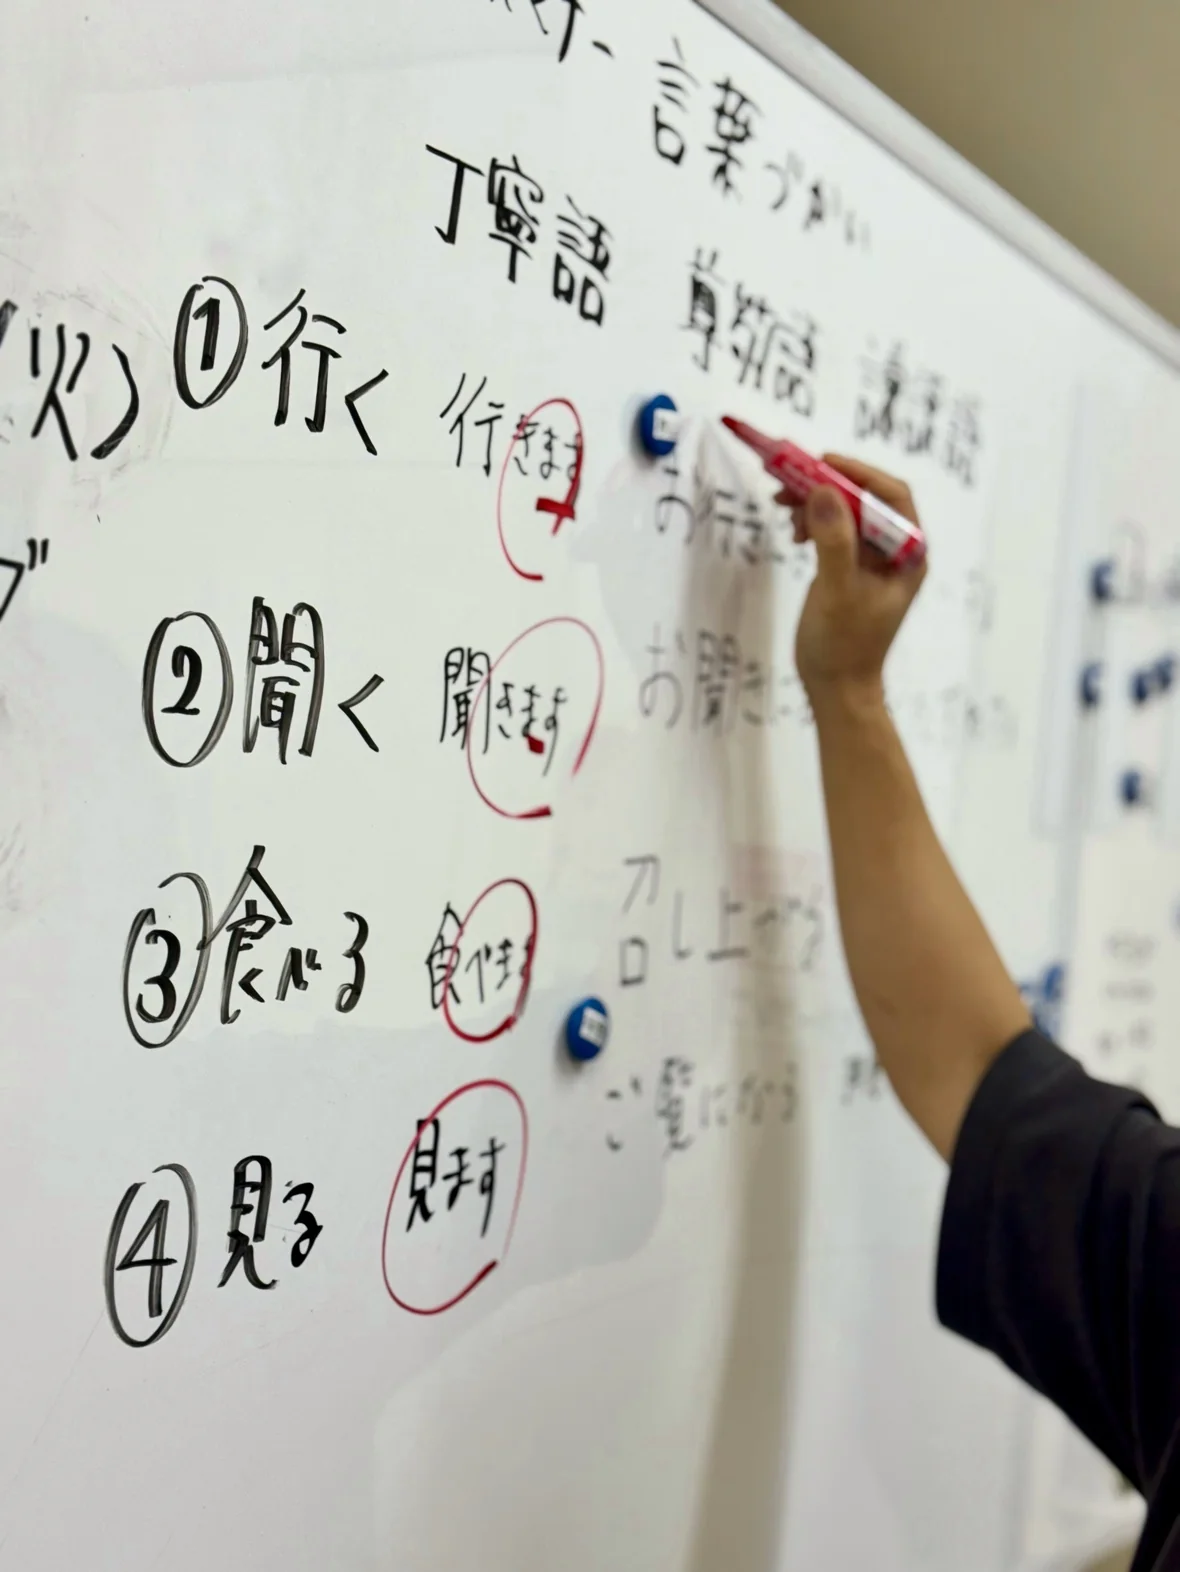 言葉づかい
丁寧語 尊敬語 謙譲語
(火) ①行く 行きます お行き
②聞く 聞きます お聞きに
③食べる 食べます 召し上がる
④見る 見ます ご覧になる